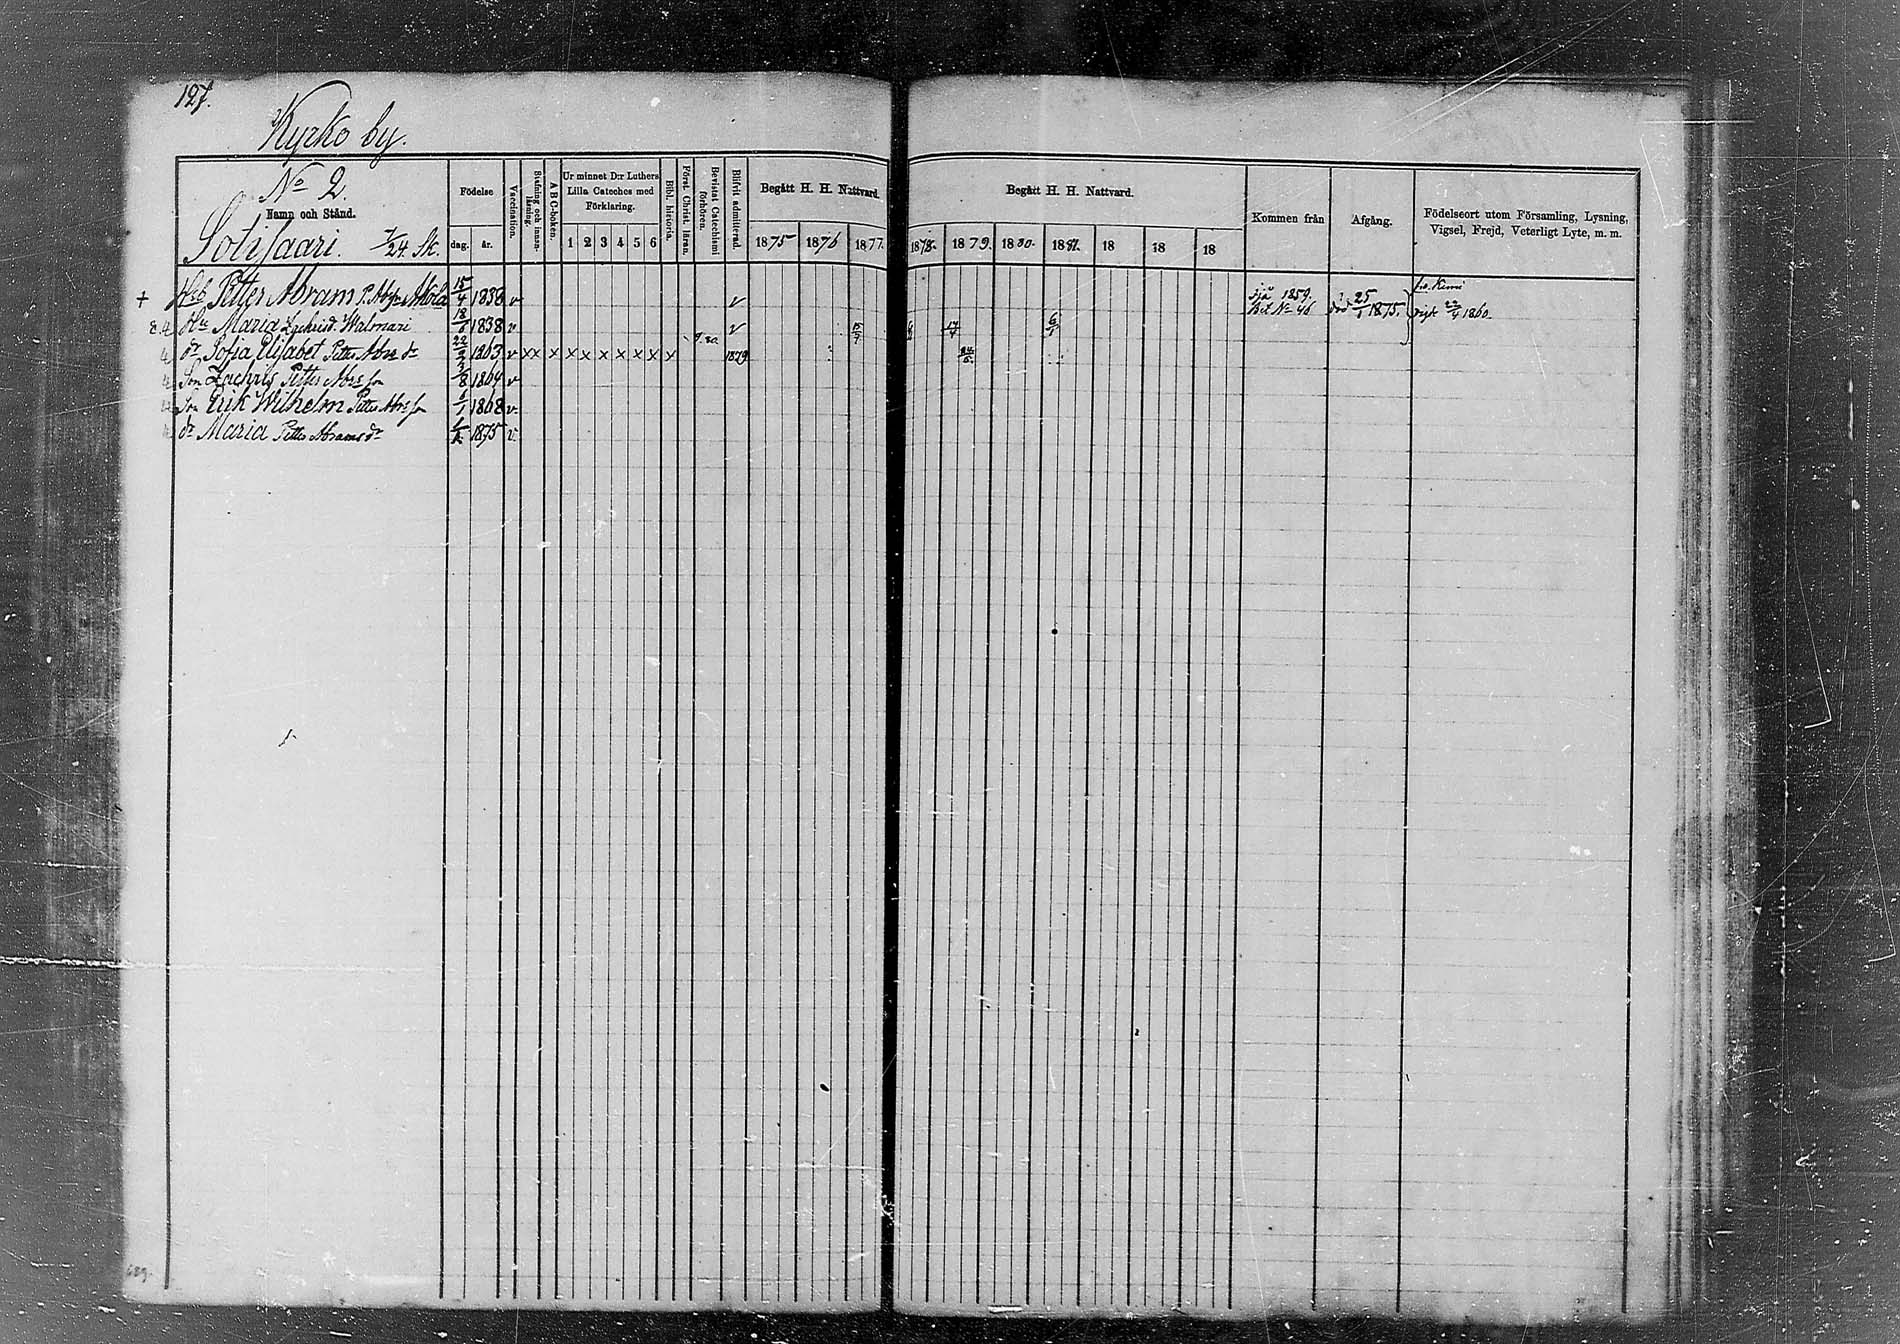 127.
Kyrko by.
No 2.
Namn och Stånd.
Sotisaari. 7/24. Sk.
Födelse
dag. år.
Vaccination.
Stafning och innan-läsning.
A B C-boken.
Ur minnet D:r Luthers Lilla Cateches med Förklaring.
1 2 3 4 5 6
Bibl. historia.
Först. Christ. läran.
Bevistat Catechismi förhören.
Blifvit admitterad.
Begått H. H. Nattvard.
1875 1876 1877.
Begått H. H. Nattvard.
1878. 1879. 1880. 1881. 18 18 18
Kommen från
Afgång.
Födelseort utom Församling, Lysning, Vigsel, Frejd, Veterligt Lyte, m. m.
Petter Abram 15/4 1838 v v 1859. No 46 död 25/1 1875. fr. Kemi
Hu Maria Walmari 18/6 1838 v v 17/4 6/1 vigde 22/4 1860.
dr Sofia Elisabet Petter Abr. dr 22/2 1863 v x x x x x x x x x x 9. 80. 1879
Son Zachris Petter Abr. son 3/8 1864 v
Son Erik Wilhelm Petter Abr. son 1/1 1868 v
dr Maria Petter Abrams dr 1875 v